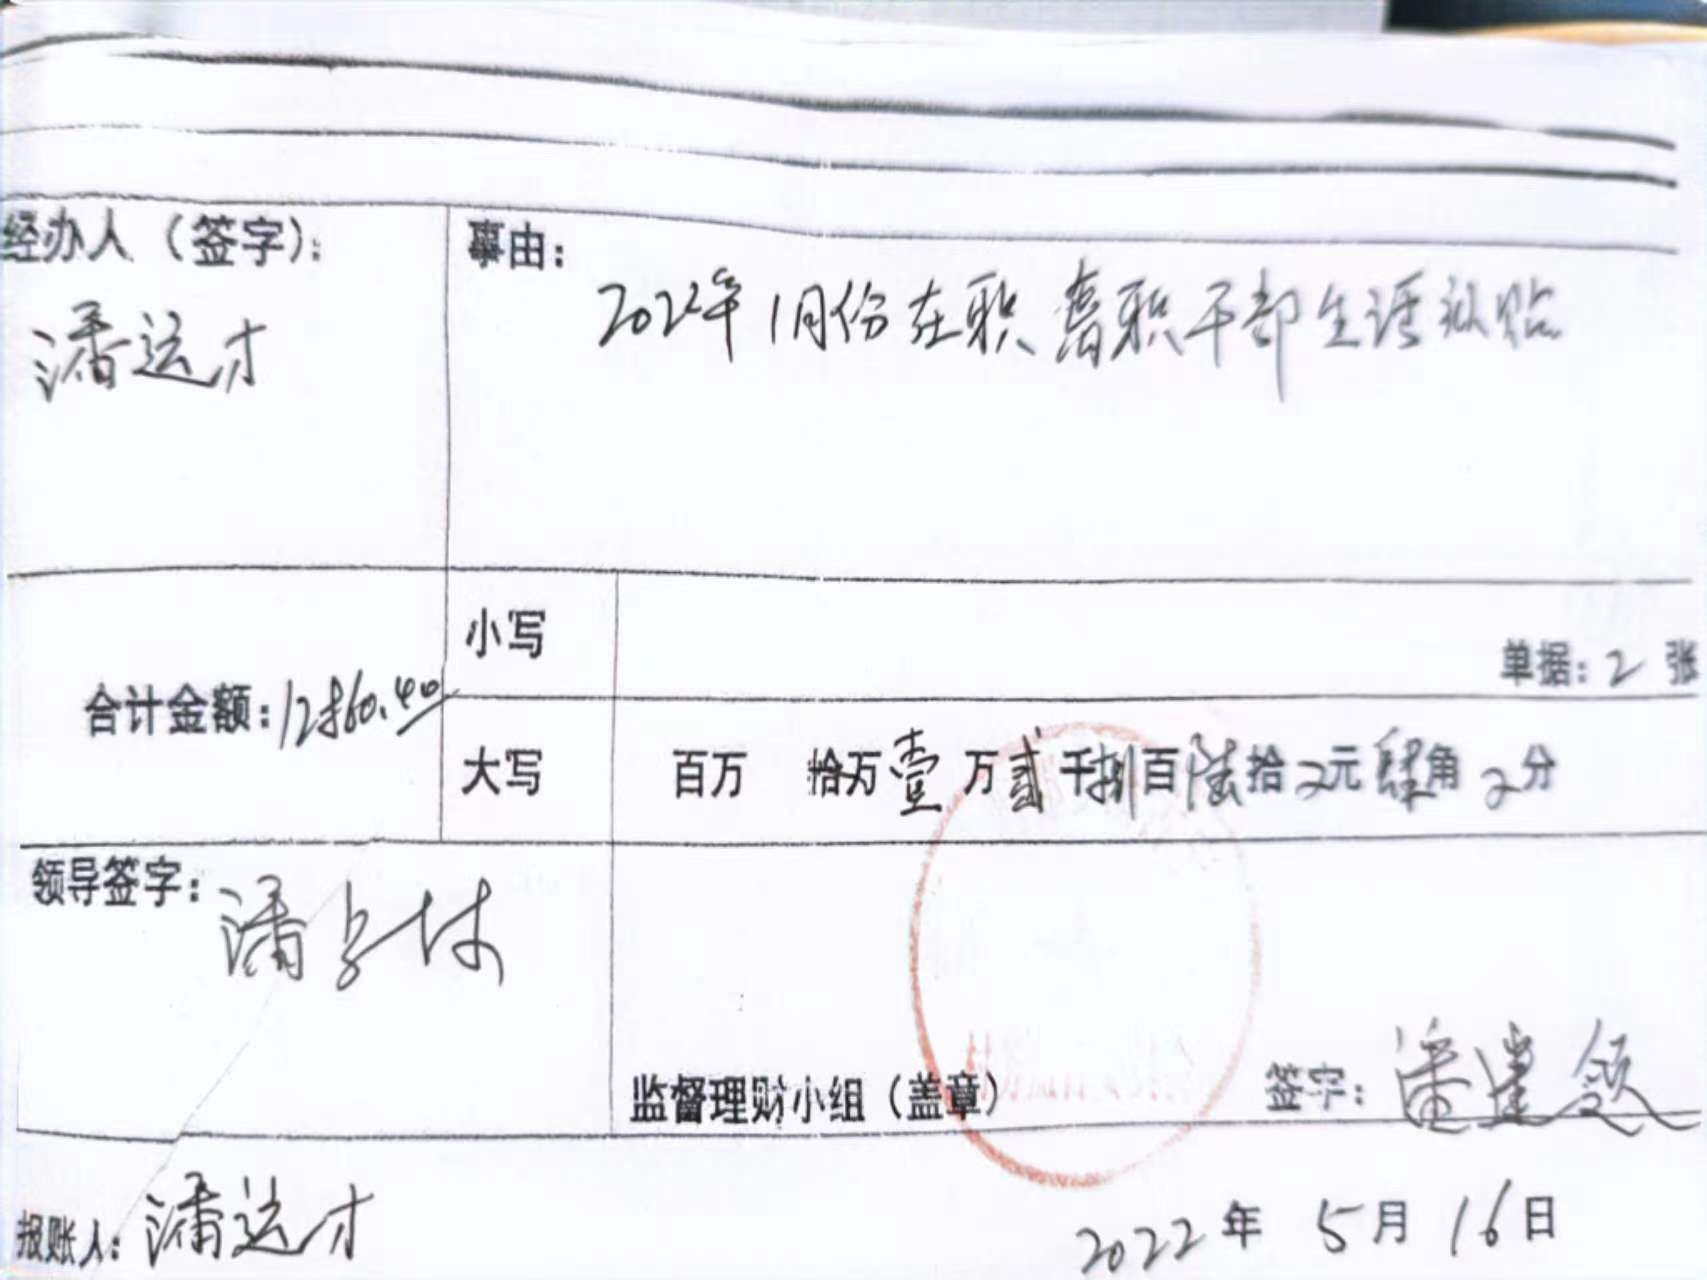 经办人（签字）：
潘运才
事由：
2022年1月份在职离职干部生活补贴
合计金额：12860.40
小写
单据：2 张
大写 百万 拾万壹万贰千捌百陆拾2元肆角2分
领导签字：潘
监督理财小组（盖章）
签字：潘
报账人：潘运才
2022年5月16日